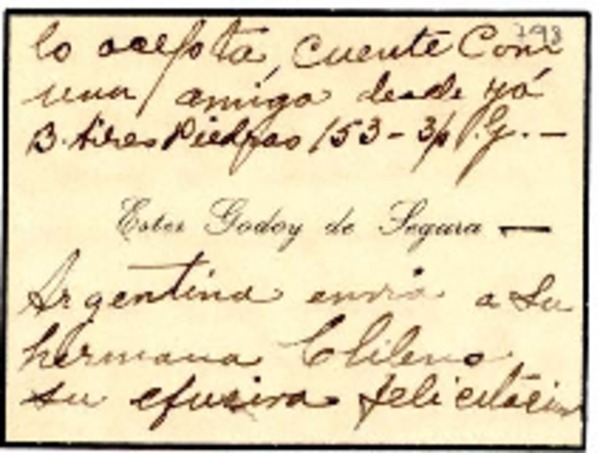 798
lo acepta, cuente Con
una amiga desde yá
B. Aires Piedras 153 - 3/p
Ester Godoy de Segura —
Argentina envia a su
hermana Chilena
su efusiva felicitacion